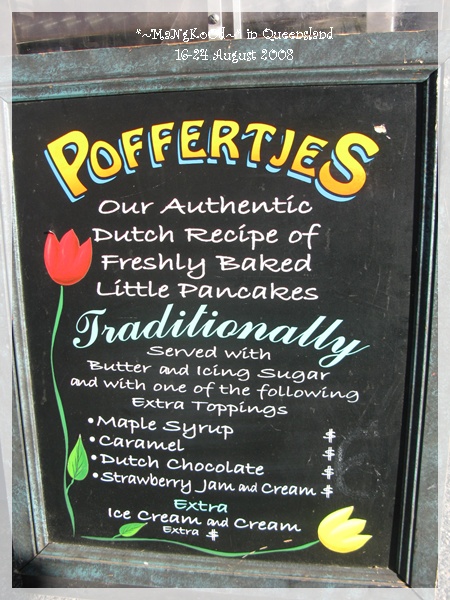 *~MaNgKoOd~* in Queensland
16-24 August 2008
POFFERTJES
Our Authentic
Dutch Recipe of
Freshly Baked
Little Pancakes
Traditionally
Served with
Butter and Icing Sugar
and with one of the following
Extra Toppings
•Maple Syrup $
•Caramel $
•Dutch Chocolate $
•Strawberry Jam and Cream $
Extra
Ice Cream and Cream
Extra $